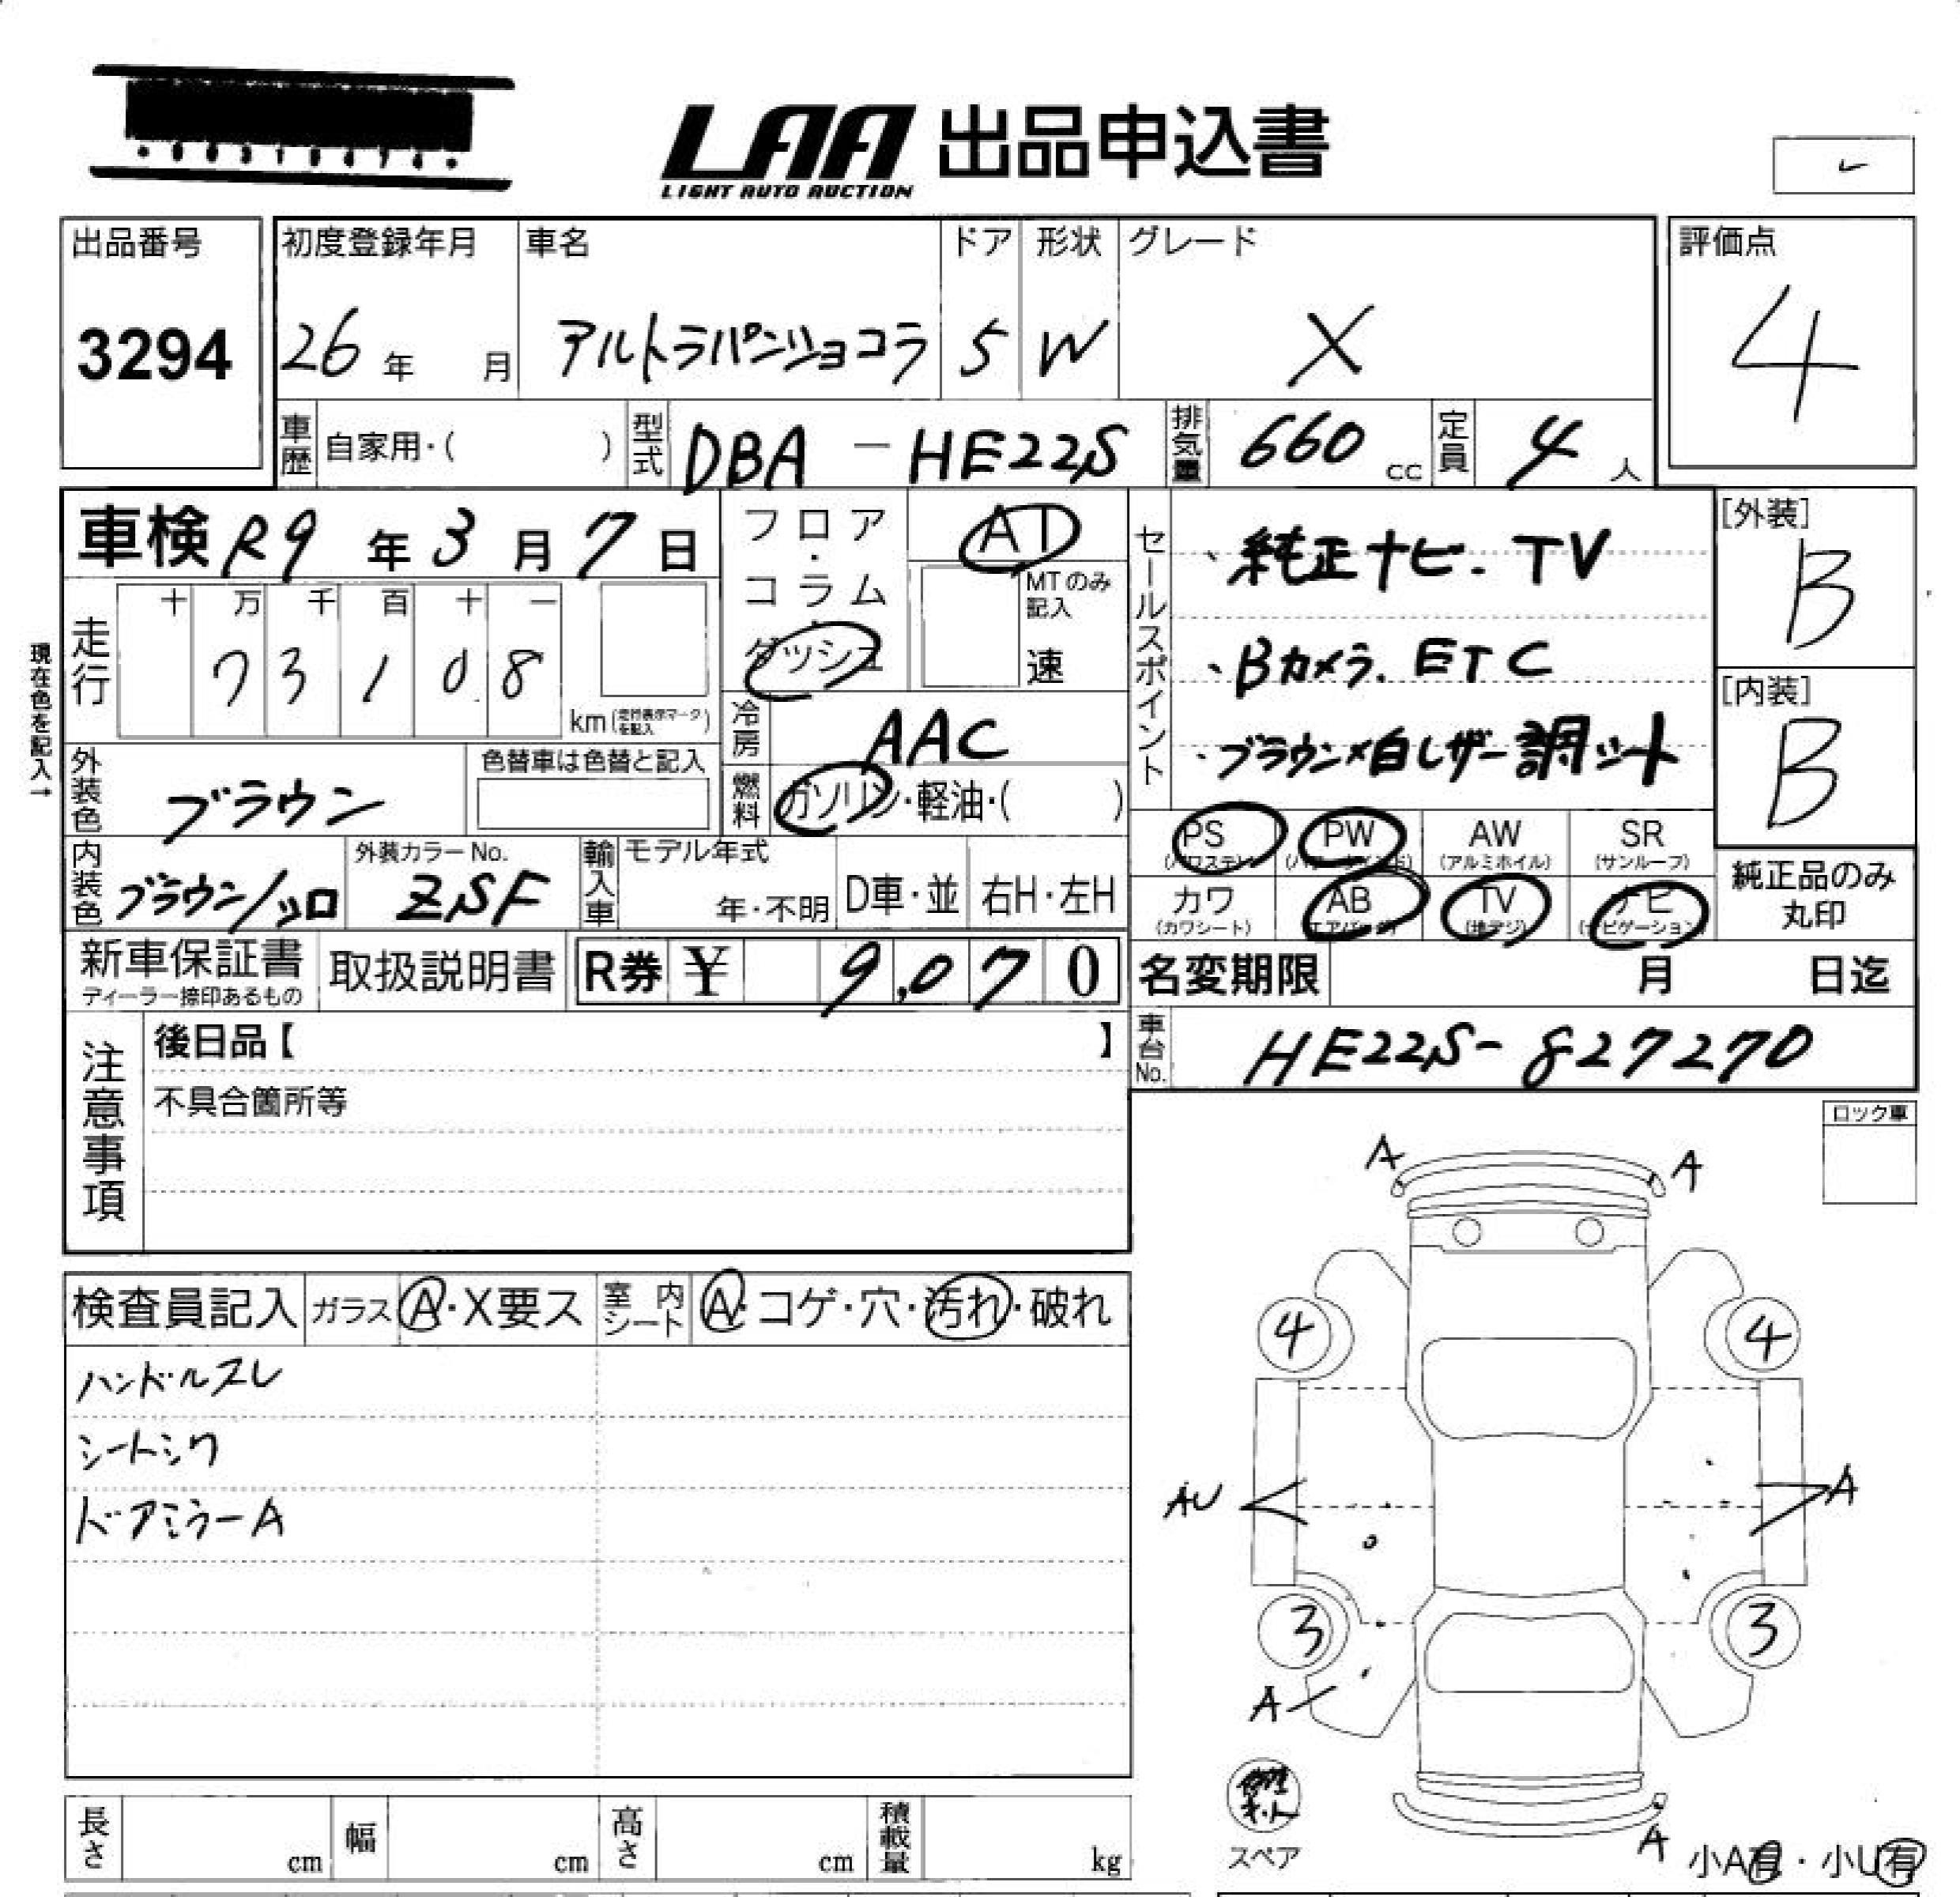 LAA 出品申込書
LIGHT AUTO AUCTION
出品番号
3294
初度登録年月
26年 月
車名
アルトラパンショコラ
ドア
5
形状
W
グレード
X
評価点
4
車歴 自家用・( )
型式 DBA - HE22S
排気量 660 cc
定員 4 人
車検 R9年3月7日
フロア・コラム・ダッシュ
AT
MTのみ記入
速
現在色を記入→
走行
十 万 千 百 十 一
7 3 1 0 8
km (走行表示マークを記入)
冷房 AAC
外装色 ブラウン
色替車は色替と記入
燃料 ガソリン・軽油・( )
内装色 ブラウン/シロ
外装カラーNo.
ZSF
輸入車 モデル年式
年・不明
D車・並
右H・左H
セールスポイント
・純正ナビ. TV
・Bカメラ. ETC
・ブラウン×白レザー調シート
[外装]
B
[内装]
B
PS (パワステ)
PW (パワーウインド)
AW (アルミホイル)
SR (サンルーフ)
カワ (カワシート)
AB (エアバッグ)
TV (地デジ)
ナビ (ナビゲーション)
純正品のみ丸印
新車保証書
ディーラー捺印あるもの
取扱説明書
R券 ¥ 9,070
名変期限 月 日迄
車台No. HE22S-827270
注意事項
後日品【 】
不具合箇所等
ロック車
検査員記入
ガラス A・X要ス
室内シート A・コゲ・穴・汚れ・破れ
ハンドルスレ
シートシワ
ドアミラーA
A
A
4
4
AU
A
3
3
A
スペア
A
小A有・小U有
長さ cm
幅 cm
高さ cm
積載量 kg